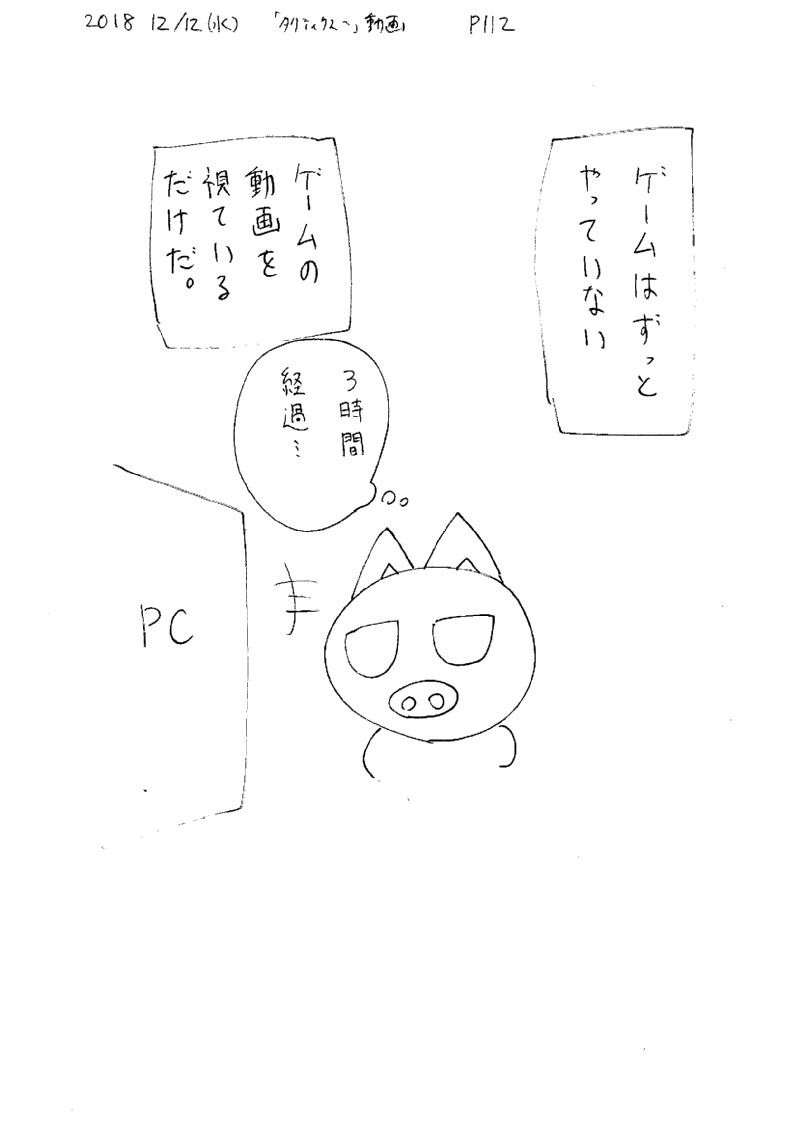 2018 12/12(水) 「タクティクス〜」動画 P112
ゲームはずっと
やっていない
ゲームの
動画を
視ている
だけだ。
3時間
経過…
PC